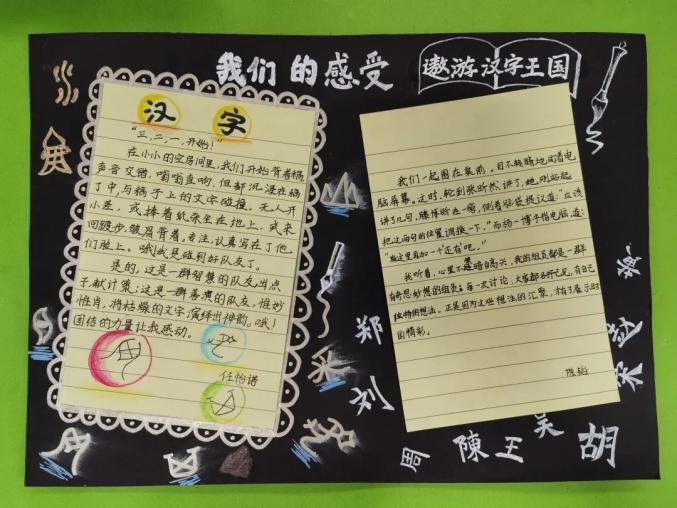 我们的感受
遨游汉字王国
汉字
“三,二,一,开始!”
在小小的空房间里,我们开始背着稿
声音交错,嗡嗡直响,但都沉浸在稿
了中与稿子上的文字碰撞。无人开
小差,或捧着纸朵坐在地上,或来
回踱步皱眉背着。专注,认真写在了他
们脸上。哦!我是碰到好队友了。
是的,这是一群智慧的队友,出点
子,献计策;这是一群善演的队友,惟妙
惟肖,将枯燥的文字演绎出神韵。哦!
团结的力量让我感动。
任怡诺
我们一起围在桌前,目不转睛地盯着电
脑屏幕。这时,轮到张昕然讲了,她刚站起
讲了几句,滕博昕
把这两句的位置调换一下。”而杨一博手指电脑,道:
“在这里再加一个还有吧。”
我听着,心里不禁暗自高兴,我的组员都是一群
有奇思妙想的组员。每一次讨论,大家都各抒己见,有自己
独特的想法。正是因为这些想法的汇聚,才有了展示时
的精彩。
陈
郑
刘
周
陳
王
吴
胡
宋
赵